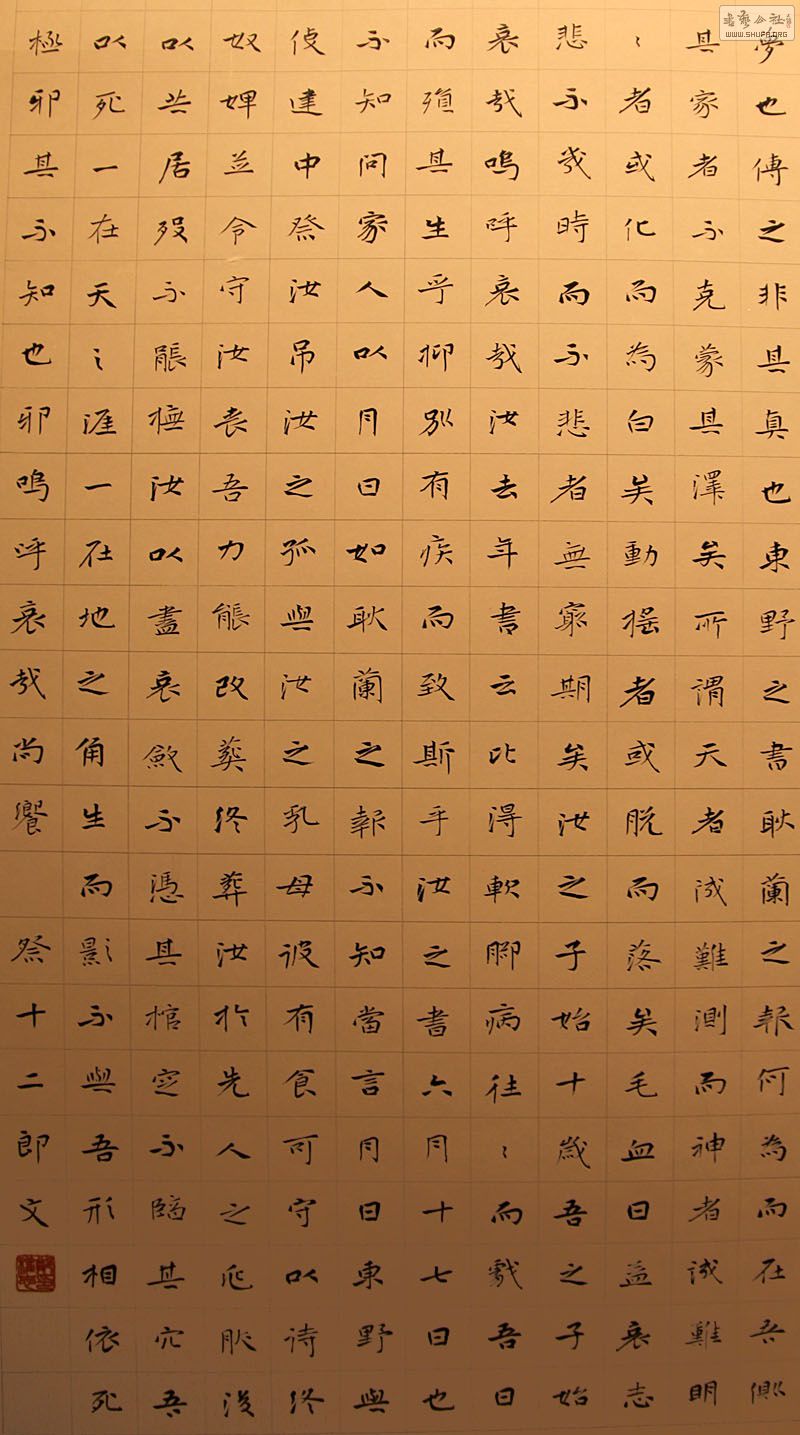 夢也傳之非其真也東野之書耿蘭之報何為而在吾側
其家者不克蒙其澤矣所謂天者誠難測而神者誠難明
〻者或化而為白矣動搖者或脫而落矣毛血日益衰志
悲不幾時而不悲者無窮期矣汝之子始十歲吾之子始
哀哉嗚呼哀哉汝去年書云比得軟腳病往〻而劇吾曰
而殞其生乎抑別有疾而致斯乎汝之書六月十七日也
不知問家人以月日如耿蘭之報不知當言月日東野與
使建中祭汝吊汝之孤與汝之乳母彼有食可守以待終
奴婢並令守汝喪吾力能改葬終葬汝於先人之兆然後
以共居歿不能撫汝以盡哀斂不憑其棺窆不臨其穴吾
以死一在天之涯一在地之角生而影不與吾形相依死
極邪其不知也邪嗚呼哀哉尚饗 祭十二郎文
書藝公社
WWW.SHUFA.ORG